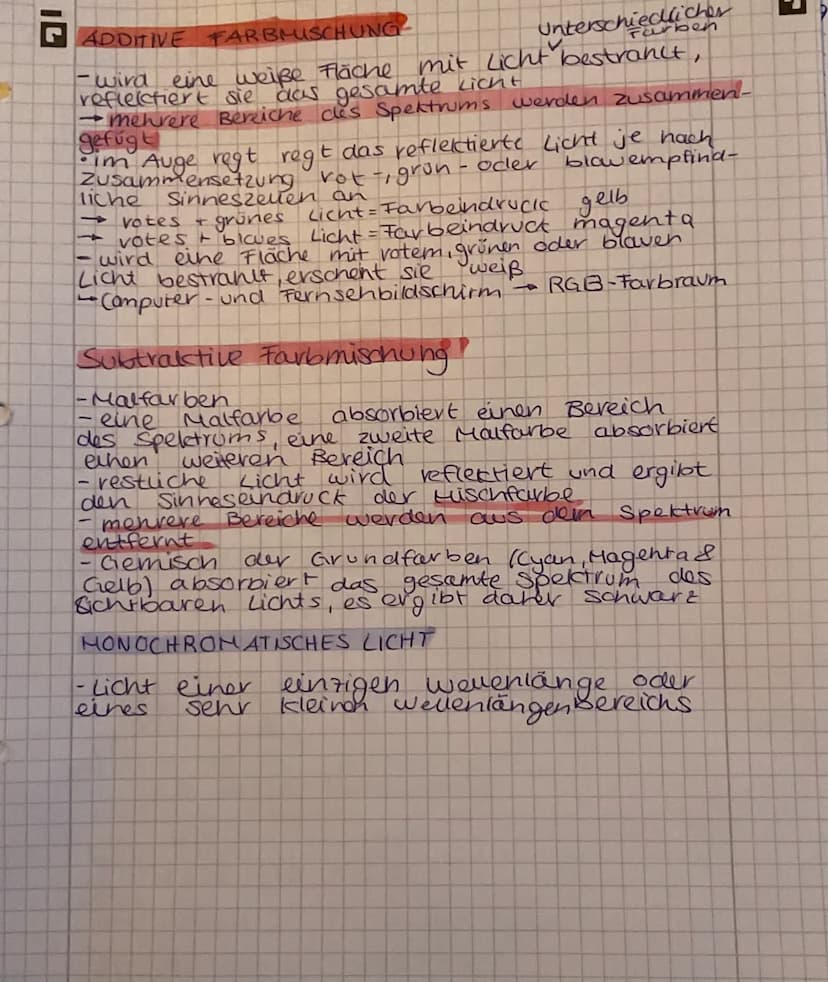 ADDITIVE FARBMISCHUNG
unterschiedlicher
Farben
- wird eine weiße Fläche mit Licht bestrahlt,
reflektiert sie das gesamte Licht
→ mehrere Bereiche des Spektrums werden zusammen-
gefügt
• im Auge regt regt das reflektierte Licht je nach
Zusammensetzung rot-, grün- oder blauempfind-
liche Sinneszellen an
→ rotes + grünes Licht = Farbeindruck gelb
→ rotes + blaues Licht = Farbeindruck magenta
- wird eine Fläche mit rotem, grünen oder blauen
Licht bestrahlt, erscheint sie weiß
↳ Computer- und Fernsehbildschirm → RGB-Farbraum
Subtraktive Farbmischung
- Malfarben
- eine Malfarbe absorbiert einen Bereich
des Spektrums, eine zweite Malfarbe absorbiert
einen weiteren Bereich
- restliche Licht wird reflektiert und ergibt
den Sinneseindruck der Mischfarbe
- mehrere Bereiche werden aus dem Spektrum
entfernt
- Gemisch der Grundfarben (Cyan, Magenta &
Gelb) absorbiert das gesamte Spektrum des
sichtbaren Lichts, es ergibt daher schwarz
MONOCHROMATISCHES LICHT
- Licht einer einzigen Wellenlänge oder
eines sehr kleinen Wellenlängenbereichs